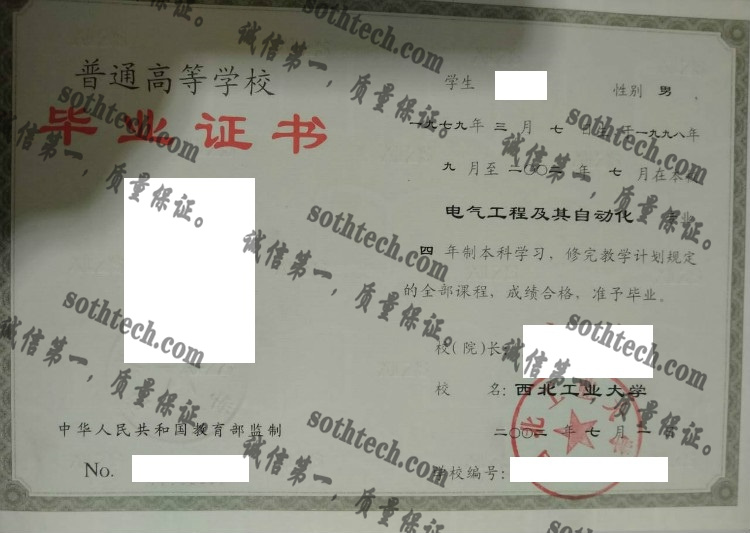 普通高等学校
毕业证书
中华人民共和国教育部监制
No.
学生
性别 男 ,
一九七九年 三 月 七 日生,于一九九八年
九 月至 二〇〇二 年 七 月在本校
电气工程及其自动化 专业
四 年制本科学习, 修完教学计划规定
的全部课程, 成绩合格, 准予毕业。
校(院)长:
校 名: 西北工业大学
二〇〇二 年 七 月 一
学校编号:
sothtech.com
诚信第一,质量保证。
sothtech.com
诚信第一,质量保证。
sothtech.com
诚信第一,质量保证。
sothtech.com
诚信第一,质量保证。
sothtech.com
诚信第一,质量保证。
sothtech.com
诚信第一,质量保证。
sothtech.com
诚信第一,质量保证。
sothtech.com
诚信第一,质量保证。